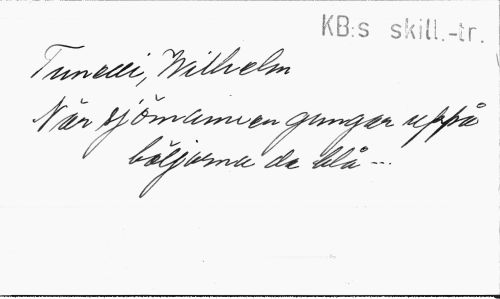 KB:s skill.-tr.
Tunelli, Wilhelm
När sjömannen gungar uppå
böljorna de blå ...